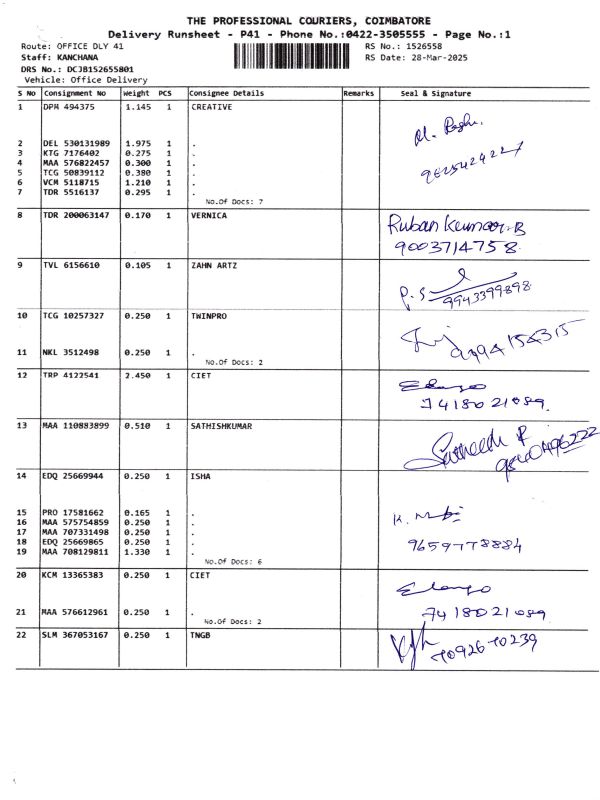 THE PROFESSIONAL COURIERS, COIMBATORE
Delivery Runsheet - P41 - Phone No.:0422-3505555 - Page No.:1
Route: OFFICE DLY 41 RS No.: 1526558
Staff: KANCHANA RS Date: 28-Mar-2025
DRS No.: DCJB152655801
Vehicle: Office Delivery
S No Consignment No Weight PCS Consignee Details Remarks Seal & Signature
1 DPM 494375 1.145 1 CREATIVE
2 DEL 530131989 1.975 1 .
3 KTG 7176402 0.275 1 .
4 MAA 576822457 0.300 1 .
5 TCG 50839112 0.380 1 .
6 VCM 5118715 1.210 1 .
7 TDR 5516137 0.295 1 .
No.Of Docs: 7
8 TDR 200063147 0.170 1 VERNICA Ruban Kumar.B
9003714758
9 TVL 6156610 0.105 1 ZAHN ARTZ P.S
9943399898
10 TCG 10257327 0.250 1 TWINPRO
11 NKL 3512498 0.250 1 .
No.Of Docs: 2
12 TRP 4122541 2.450 1 CIET Elango
7418021089.
13 MAA 110883899 0.510 1 SATHISHKUMAR
14 EDQ 25669944 0.250 1 ISHA
15 PRO 17581662 0.165 1 .
16 MAA 575754859 0.250 1 . K.
17 MAA 707331498 0.250 1 .
18 EDQ 25669865 0.250 1 . 9659778884
19 MAA 708129811 1.330 1 .
No.Of Docs: 6
20 KCM 13365383 0.250 1 CIET Elango
21 MAA 576612961 0.250 1 . 7418021089
No.Of Docs: 2
22 SLM 367053167 0.250 1 TNGB 7092670239